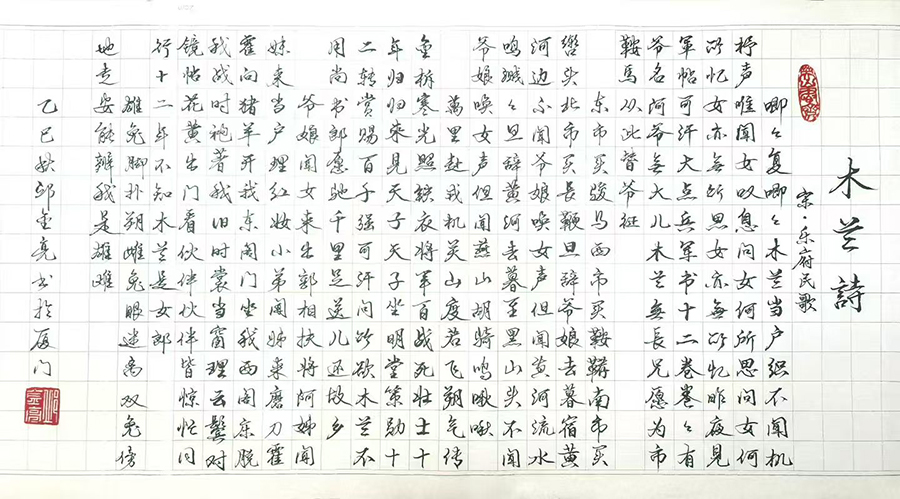 木兰詩
宋·乐府民歌
唧々复唧々木兰当户织不闻机
杼声唯闻女叹息问女何所思问女何
所忆女亦無所思女亦無所忆昨夜見
军帖可汗大点兵军书十二卷卷々有
爷名阿爷無大儿木兰無長兄愿为市
鞍馬从此替爷征
东市买骏马西市买鞍鞯南市买
辔头北市买長鞭旦辞爷娘去暮宿黄
河边不闻爷娘唤女声但闻黄河流水
鸣溅々旦辞黄河去暮至黑山头不闻
爷娘唤女声但闻燕山胡骑鸣啾啾
萬里赴戎机关山度若飞朔气传
金柝寒光照铁衣将军百战死壮士十
年归归来見天子天子坐明堂策勋十
二转赏赐百千强可汗问所欲木兰不
用尚书郎愿驰千里足送儿还故乡
爷娘闻女来出郭相扶将阿姊闻
妹来当户理红妆小弟闻姊来磨刀霍
霍向猪羊开我东阁门坐我西阁床脱
我战时袍著我旧时裳当窗理云鬓对
镜帖花黄出门看伙伴伙伴皆惊忙同
行十二年不知木兰是女郎
雄兔脚扑朔雌兔眼迷离双兔傍
地走安能辨我是雄雌
乙巳秋邱金亮书於厦门